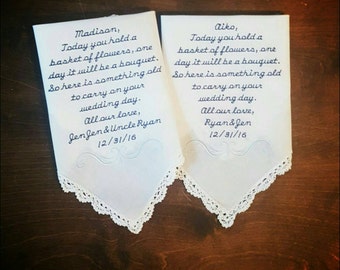 Madison,
Today you hold a
basket of flowers, one
day it will be a bouquet.
So here is something old
to carry on your
wedding day.
All our love,
JenJen & Uncle Ryan
12/31/16
Aiko,
Today you hold a
basket of flowers, one
day it will be a bouquet.
So here is something old
to carry on your
wedding day.
All our love,
Ryan & Jen
12/31/16